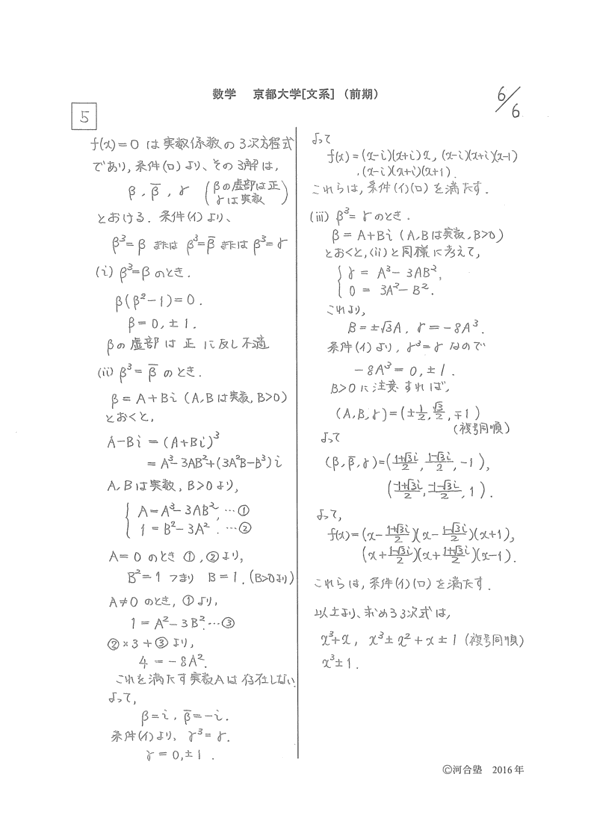 数学　京都大学[文系]（前期）
6/6
5
f(x)=0 は実数係数の3次方程式
であり,条件(ロ)より、その3解は,
β, β̅, γ (βの虚部は正 γは実数)
とおける. 条件(イ)より、
β³=β または β³=β̅ または β³=γ
(i) β³=β のとき.
β(β²-1)=0.
β=0, ±1.
βの虚部は正に反し不適
(ii) β³=β̅ のとき.
β=A+Bi (A,Bは実数, B>0)
とおくと,
A-Bi = (A+Bi)³
= A³-3AB²+(3A²B-B³)i
A,Bは実数, B>0より,
{ A=A³-3AB², …①
1=B²-3A². …②
A=0 のとき ①,②より,
B²=1 つまり B=1. (B>0より)
A≠0 のとき, ①より,
1=A²-3B². …③
②×3+③より,
4=-8A².
これを満たす実数Aは存在しない.
よって,
β=i, β̅=-i.
条件(イ)より, γ³=γ.
γ=0, ±1.
よって
f(x)=(x-i)(x+i)x, (x-i)(x+i)(x-1)
,(x-i)(x+i)(x+1).
これらは,条件(イ)(ロ)を満たす.
(iii) β³=γ のとき.
β=A+Bi (A,Bは実数, B>0)
とおくと,(ii)と同様に考えて,
{ γ=A³-3AB²,
0=3A²-B².
これより,
B=±√3A, γ=-8A³.
条件(イ)より, γ³=γ なので
-8A³=0, ±1.
B>0に注意すれば,
(A,B,γ)=(±1/2, √3/2, ∓1)
(複号同順)
よって
(β, β̅, γ)=((1+√3i)/2, (1-√3i)/2, -1),
((-1+√3i)/2, (-1-√3i)/2, 1).
よって,
f(x)=(x-(1+√3i)/2)(x-(1-√3i)/2)(x+1),
(x+(1-√3i)/2)(x+(1+√3i)/2)(x-1).
これらは,条件(イ)(ロ)を満たす.
以上より, 求める3次式は,
x³+x, x³±x²+x±1 (複号同順)
x³±1.
©河合塾　2016年